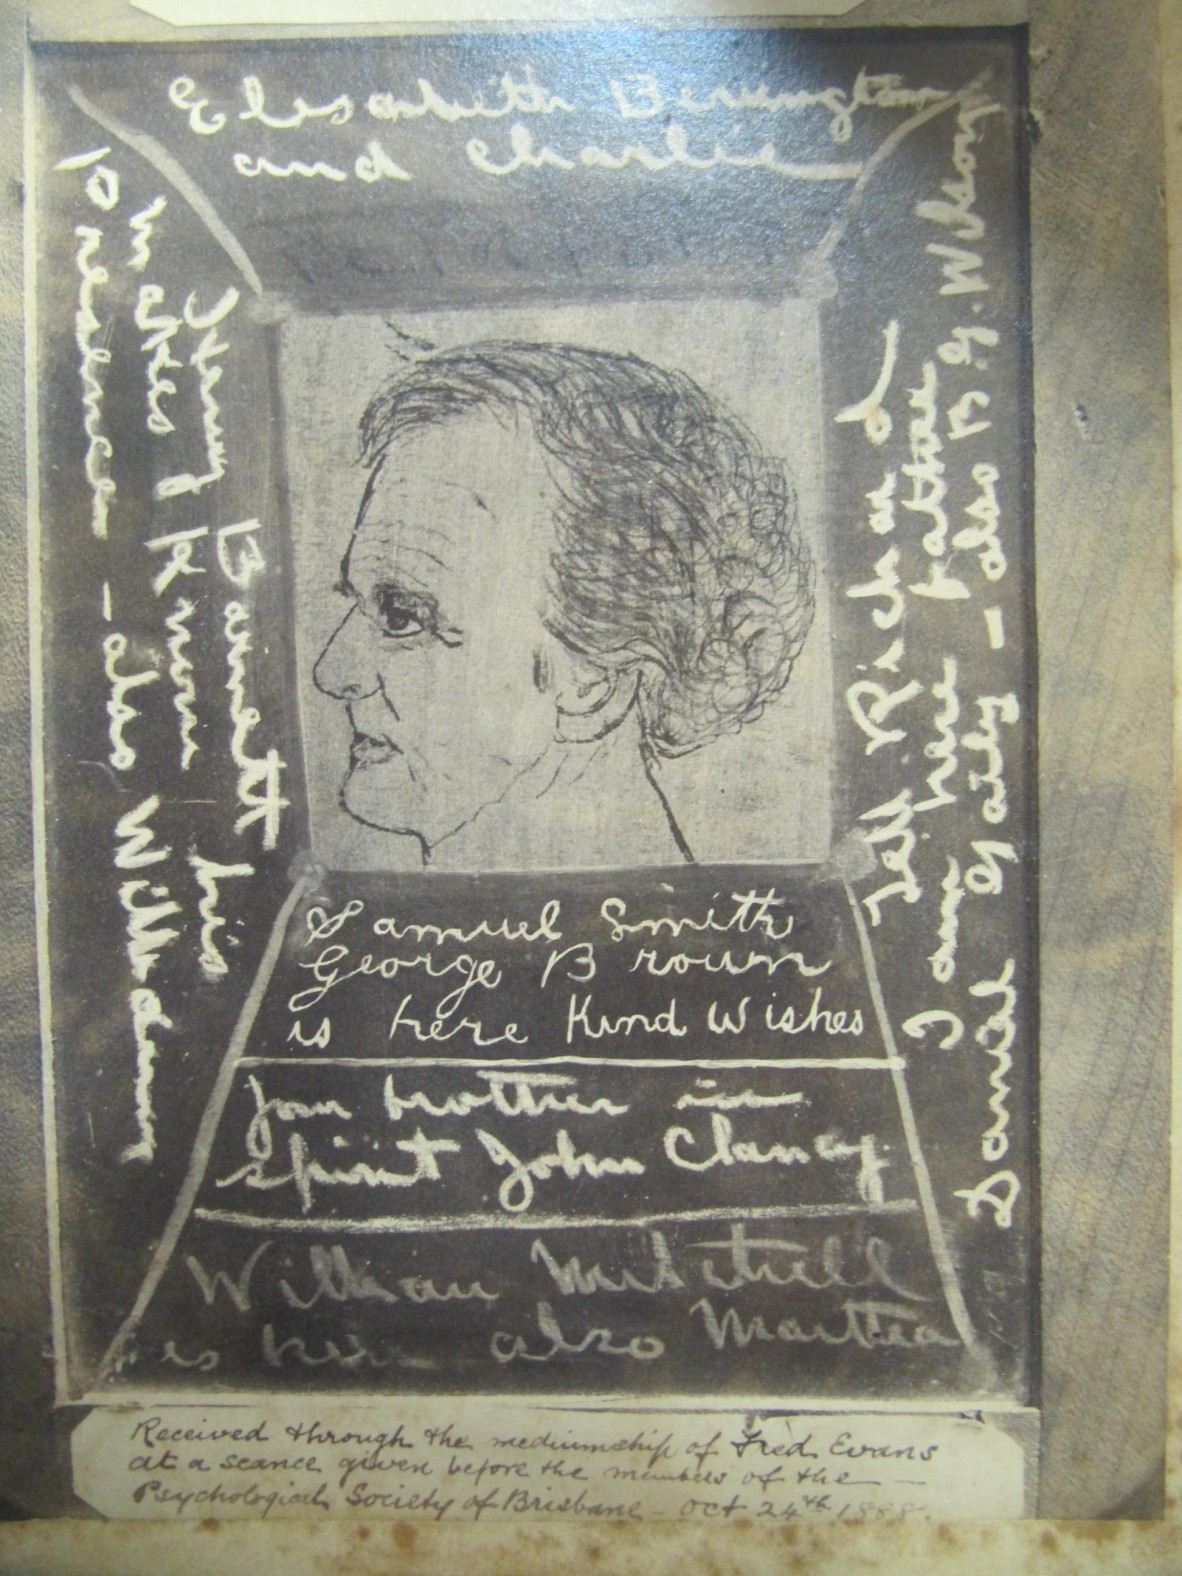 Elesabeth Berungton
and Charlie
Henry Barnett his
makes known
presence - also William
Tell Richard
I am here father
Daniel Gaity - also B. G. Wilson
Samuel Smith
George Brown
is here Kind Wishes
your brother in
spirit John Clancy
William Mitchell
is here also Martha
Received through the mediumship of Fred Evans
at a seance given before the members of the
Psychological Society of Brisbane - Oct 24th 1888.